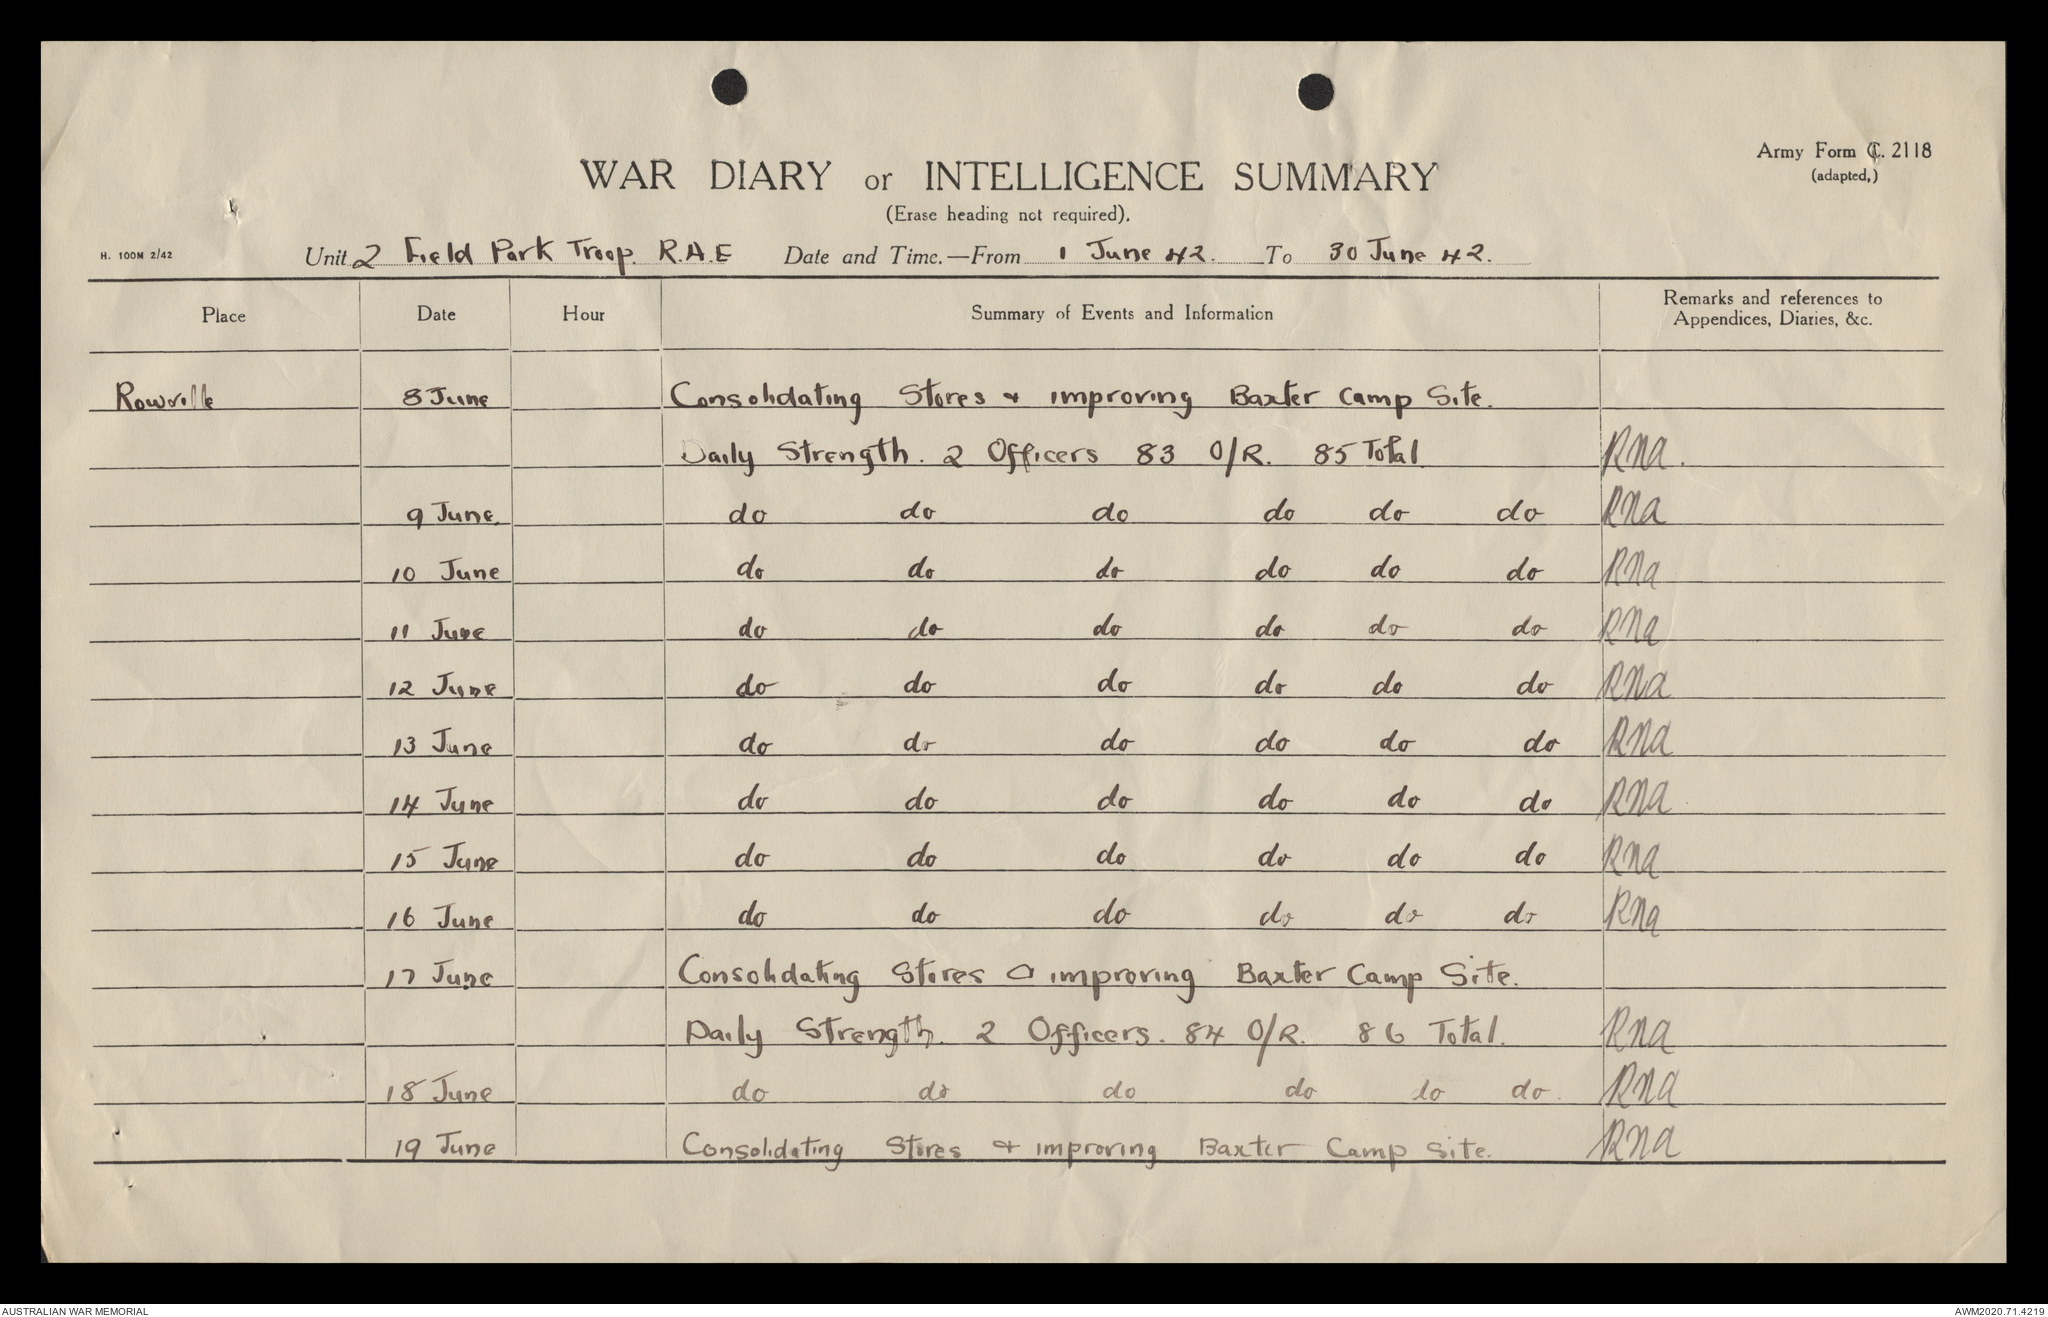 Army Form C. 2118
(adapted,)
WAR DIARY or INTELLIGENCE SUMMARY
(Erase heading not required).
H. 100M 2/42 Unit 2 Field Park Troop. R.A.E Date and Time.—From 1 June 42. To 30 June 42.
Place Date Hour Summary of Events and Information Remarks and references to
Appendices, Diaries, &c.
Rowville 8 June Consolidating Stores & improving Baxter Camp Site.
Daily Strength. 2 Officers 83 O/R. 85 Total RNA.
9 June. do do do do do do RNA
10 June do do do do do do RNA
11 June do do do do do do RNA
12 June do do do do do do RNA
13 June do do do do do do RNA
14 June do do do do do do RNA
15 June do do do do do do RNA
16 June do do do do do do RNA
17 June Consolidating Stores & improving Baxter Camp Site.
Daily Strength. 2 Officers. 84 O/R. 86 Total. RNA
18 June do do do do do do. RNA
19 June Consolidating Stores & improving Baxter Camp Site. RNA
AUSTRALIAN WAR MEMORIAL AWM2020.71.4219